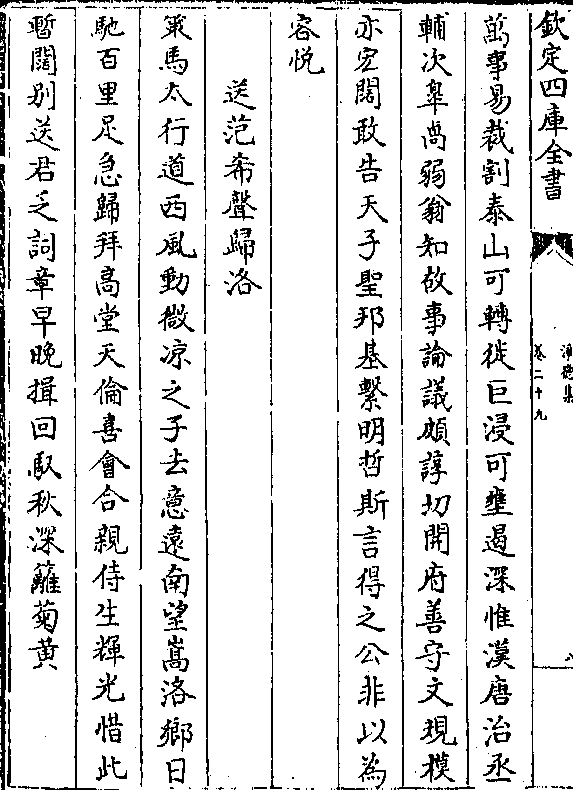 欽定四庫全書
淨德集
卷二十九
萬事易裁割泰山可轉徙巨浸可壅遏深惟漢唐治丞
輔次臯禼弱翁知故事論議頗諄切開府善守文規模
亦宏闊敢告天子聖邦基繫明哲斯言得之公非以為
容悅
送范希聲歸洛
策馬太行道西風動微凉之子去意遠南望嵩洛鄉日
馳百里足急歸拜高堂天倫喜會合親侍生輝光惜此
暫闊别送君乏詞章早晚揖回馭秋深籬菊黄